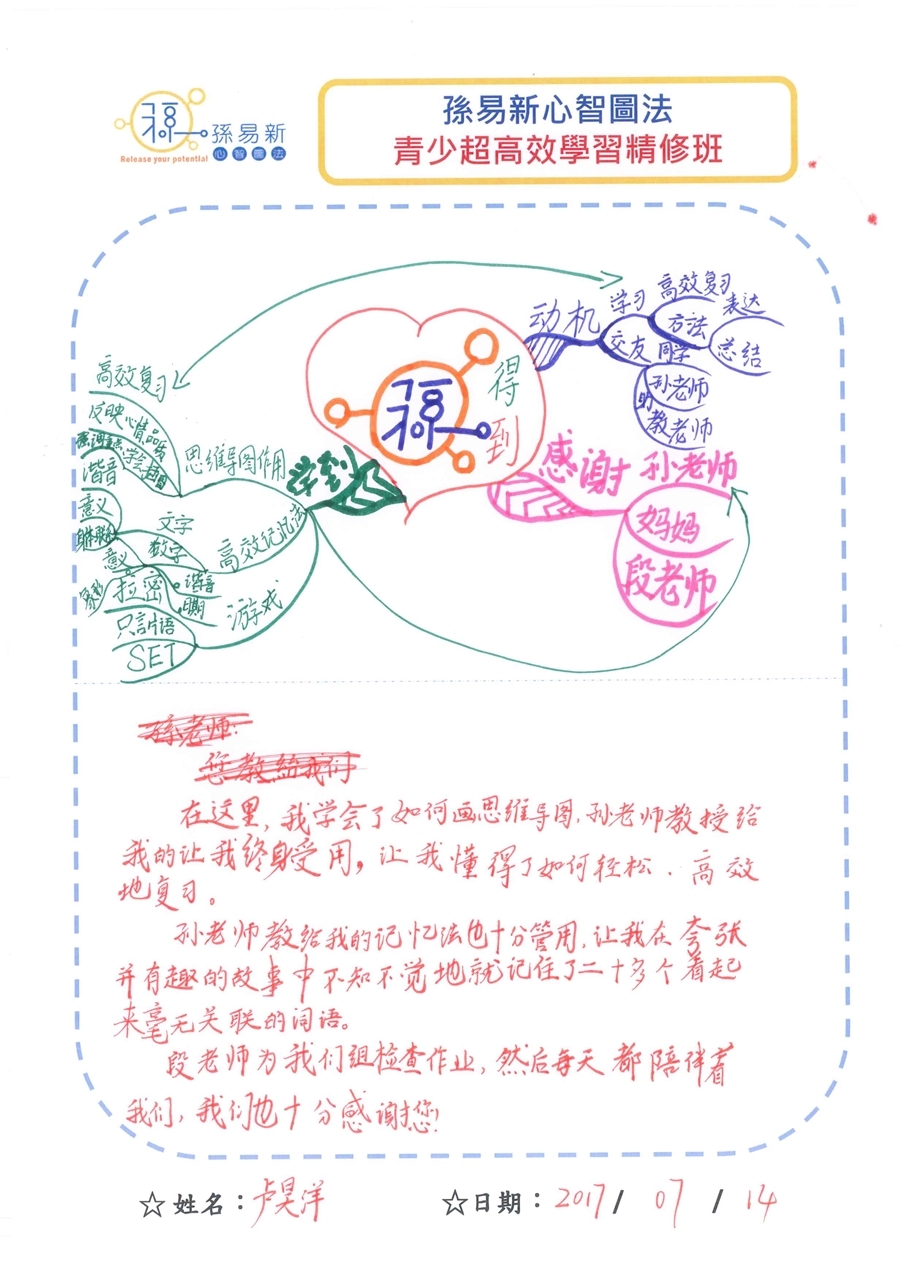 孫易新
心智圖法
Release your potential
孫易新心智圖法
青少超高效學習精修班
得
到
动机
学习
高效复习
方法
表达
总结
交友
同学
孙老师
教老师
感谢
孙老师
妈妈
段老师
学到
思维导图作用
高效复习
反映心情
高效记忆法
文字
谐音
意义
数字
意义
谐音
游戏
拉密
SET
孙老师:
您教给我们
在这里,我学会了如何画思维导图,孙老师教授给
我的让我终身受用,让我懂得了如何轻松、高效
地复习。
孙老师教给我的记忆法也十分管用,让我在夸张
并有趣的故事中不知不觉地就记住了二十多个看起
来毫无关联的词语。
段老师为我们组检查作业,然后每天都陪伴着
我们,我们也十分感谢您!
☆姓名:卢昊洋
☆日期:2017/07/14